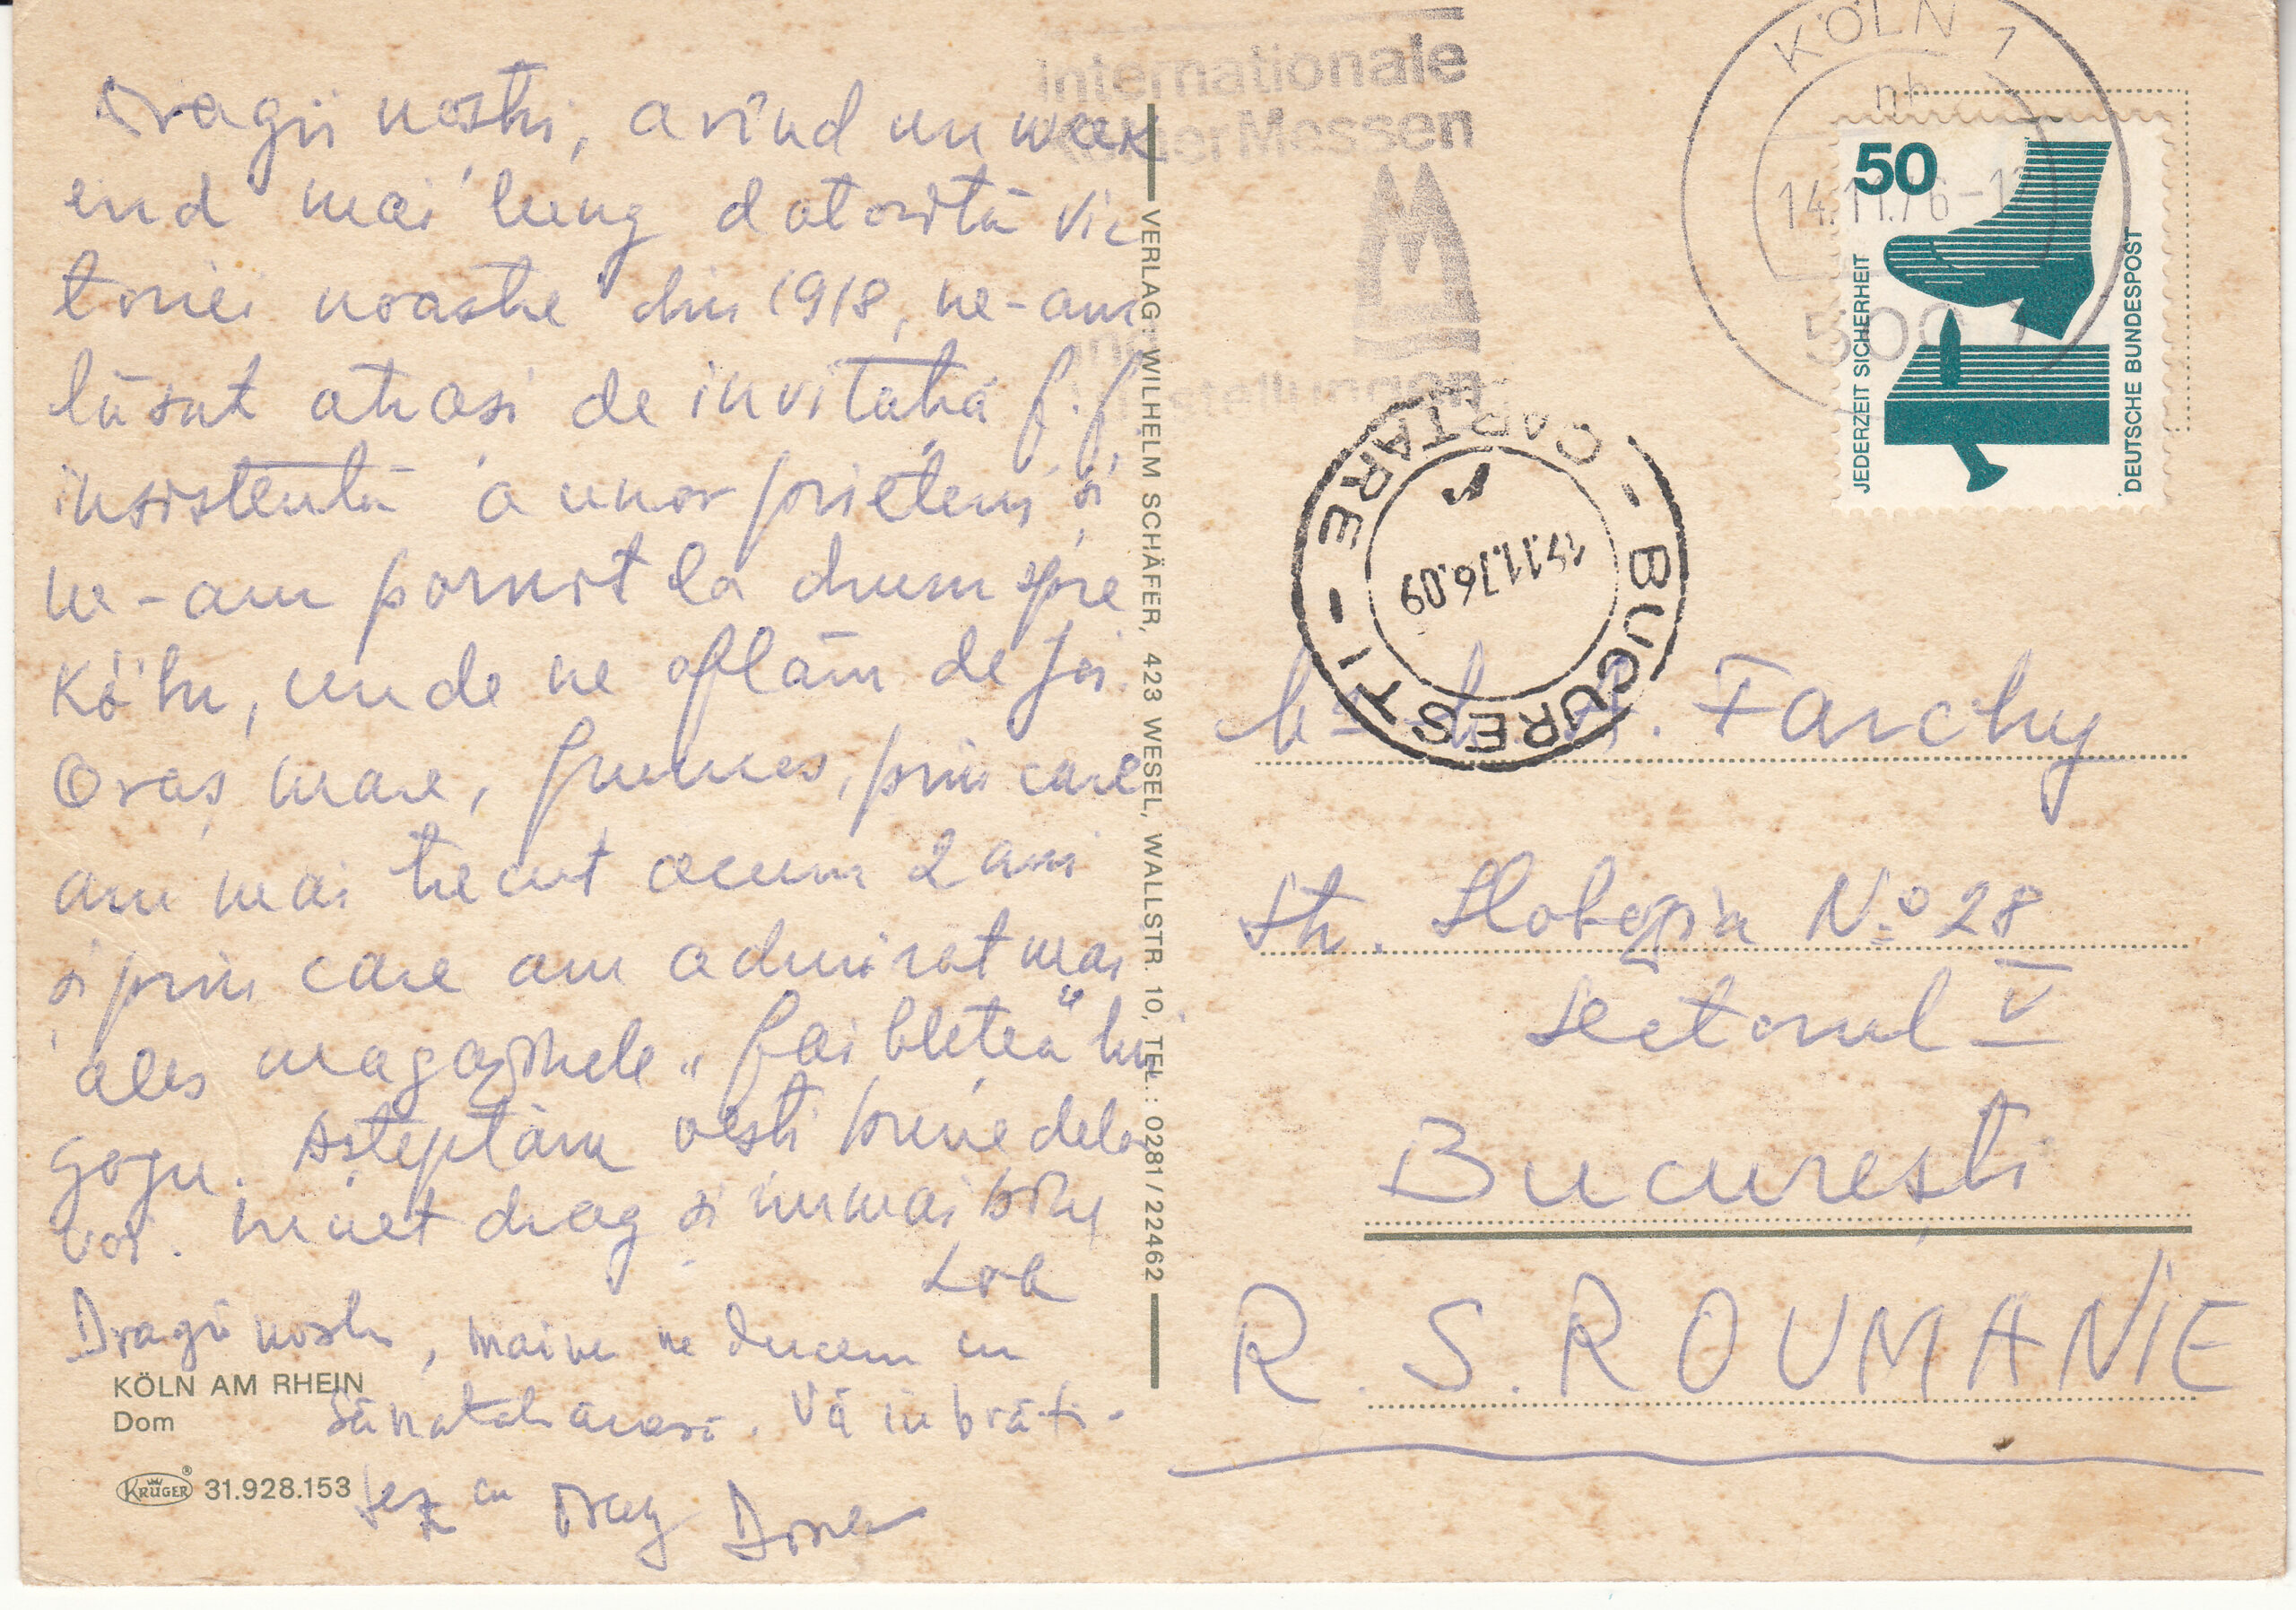 Dragii noștri, avînd un week
end mai lung datorită vic
toriei noastre din 1918, ne-am
lăsat atrași de invitația f. f.
insistentă a unor prieteni și
ne-am pornit la drum spre
Köln, unde ne aflăm de joi.
Oraș mare, frumos, prin care
am mai trecut acum 2 ani
și prin care am admirat mai
ales magazinele „ faibletea" lui
Gogu. Așteptăm vești bune dela
voi. drag și numai bine
Dragii noștri, maine ne ducem in
. Vă inbrăti-
sez cu drag Dora
KÖLN AM RHEIN
Dom
KRÜGER ® 31.928.153
VERLAG: WILHELM SCHÄFER, 423 WESEL, WALLSTR. 10, TEL.: 0281/22462
Internationale
Kölner Messen
und
Ausstellungen
KÖLN 1
nh
14.11.76-1
500
50
JEDERZEIT SICHERHEIT
DEUTSCHE BUNDESPOST
- BUCURESTI -
CARTARE
11.76.09
Farchy
Str. Slobozia No 28
Sectorul V
București
R. S. ROUMANIE